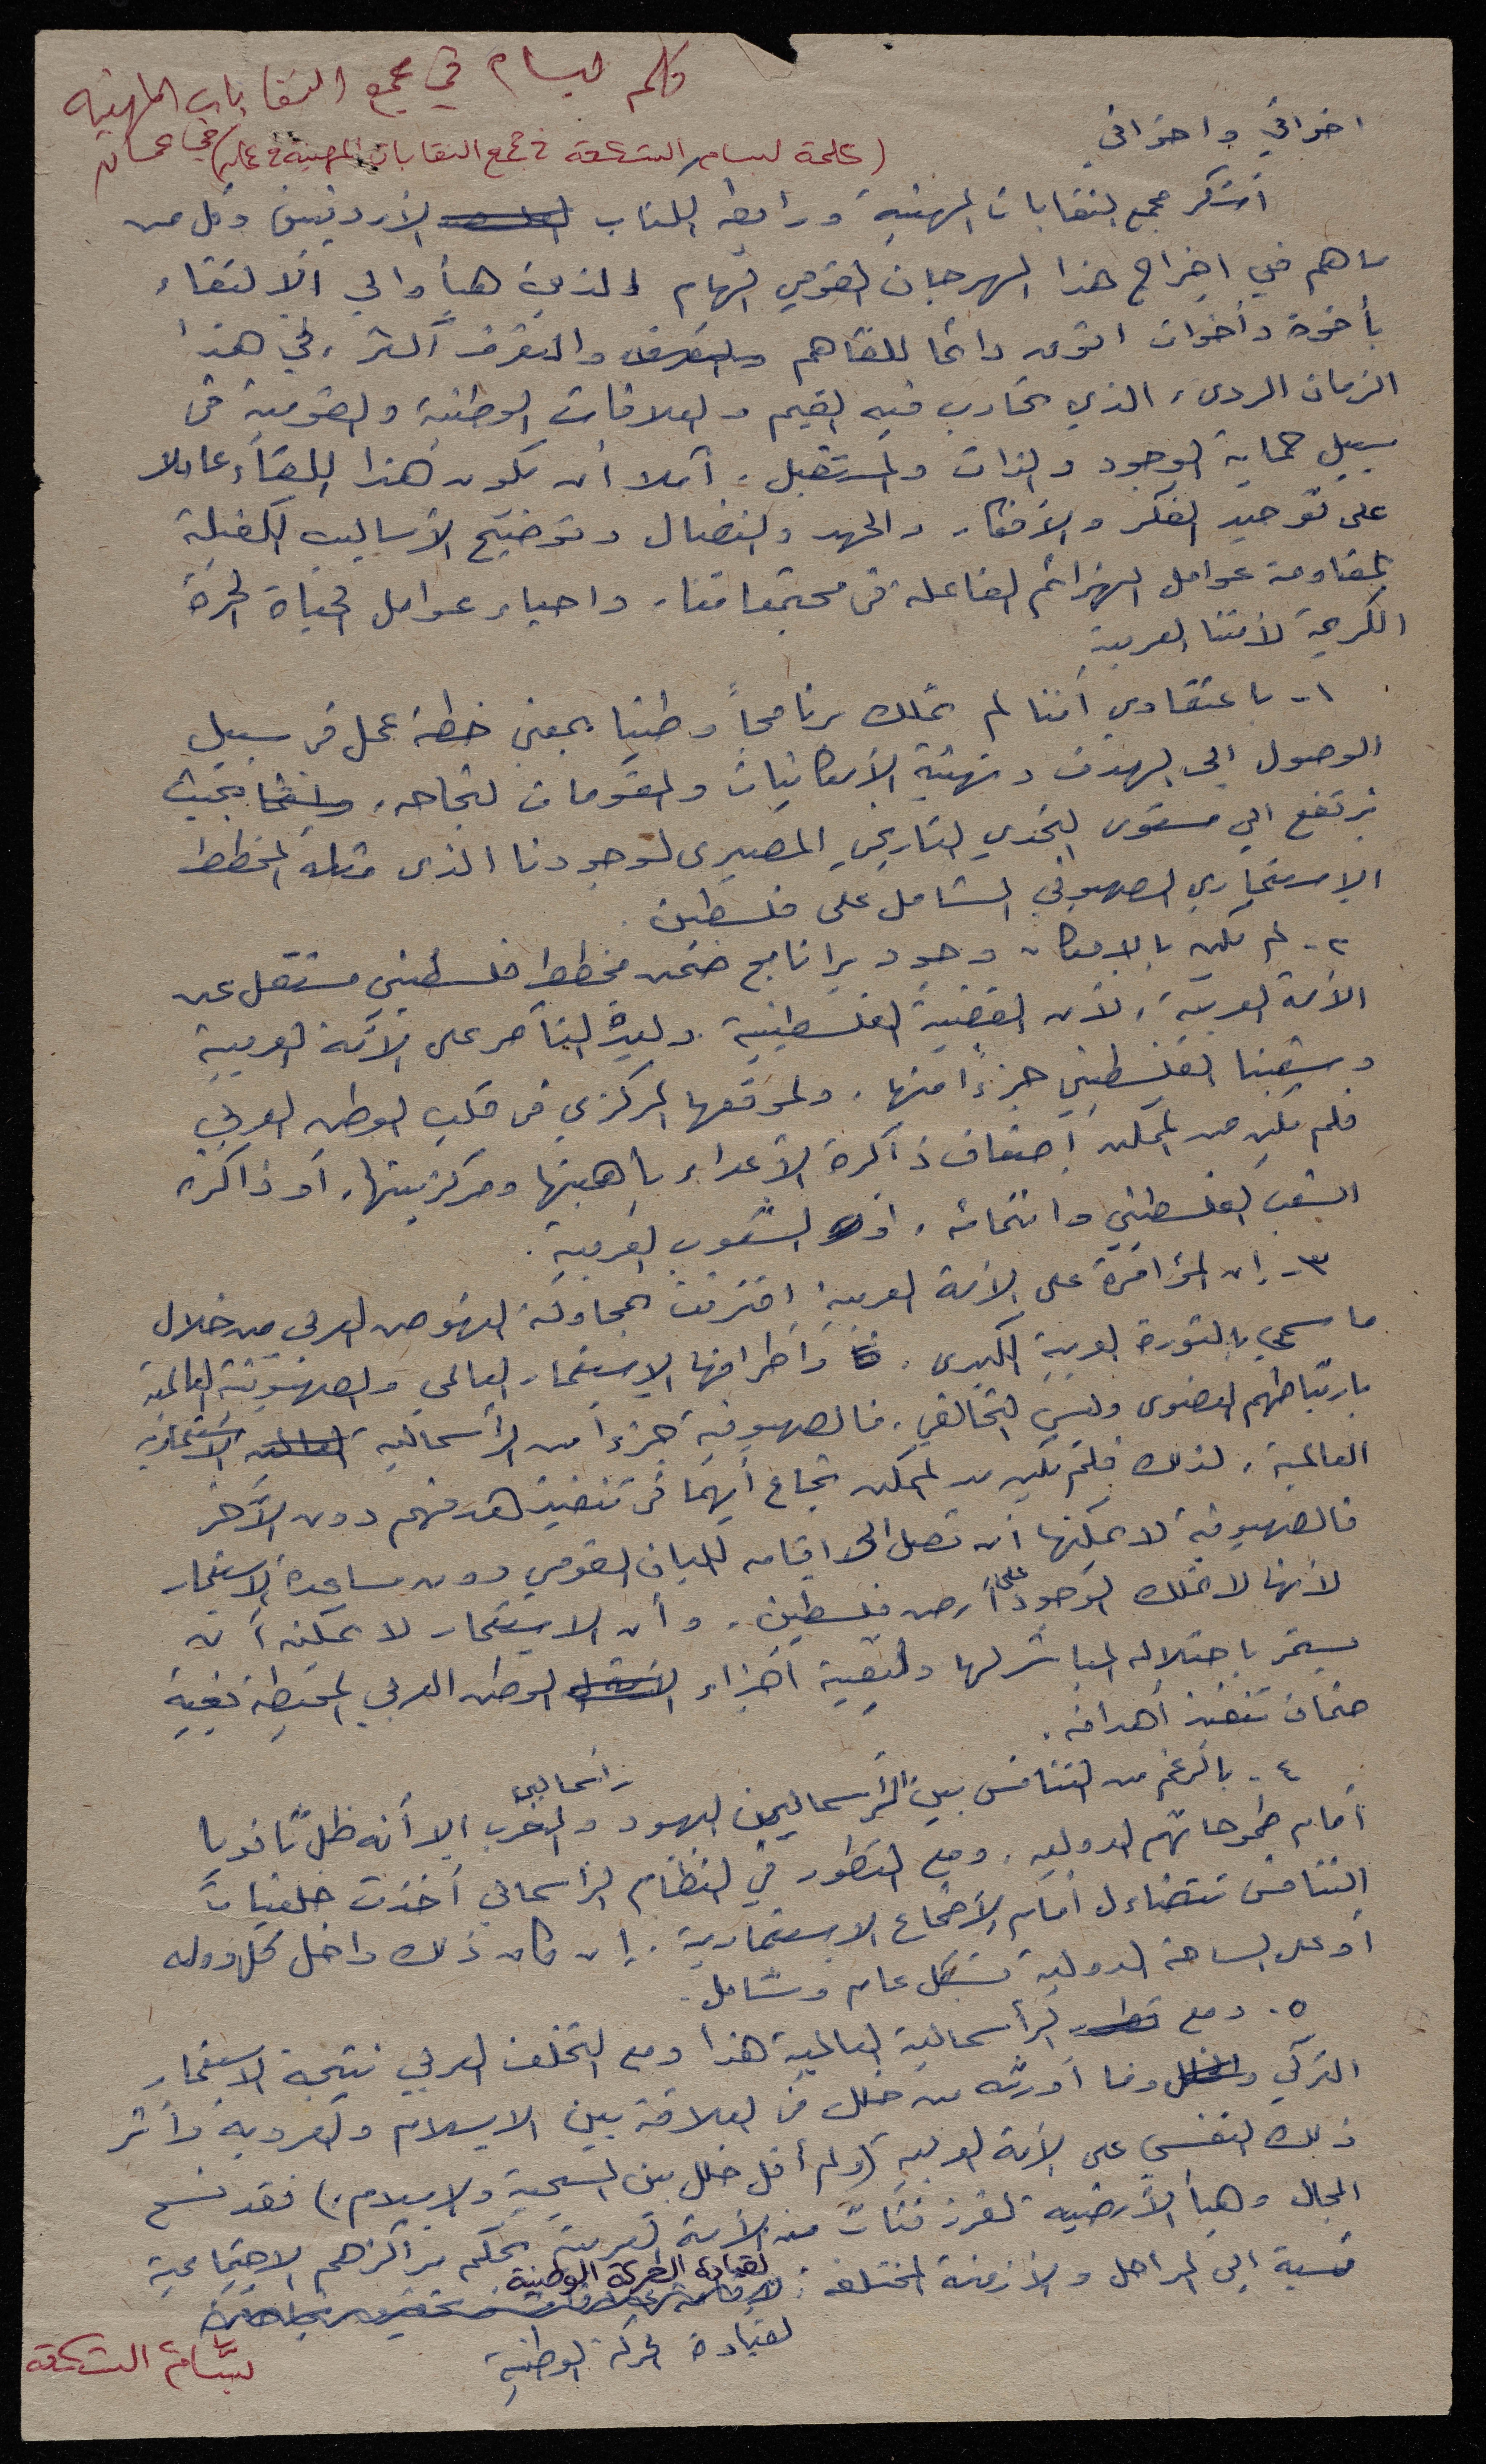 كلمة بسام في مجمع النقابات المهنيه
في عمان
(كلمة لبسام الشكعة في مجمع النقابات المهنية في عمان)
اخواني واخواتي
أشكر مجمع النقابات المهنية ورابطة الكتاب الأردنيين وكل من
ساهم في اخراج هذا المهرجان القومي الهام والذين هيأوا لي الالتقاء
بأخوة وأخوات اتوق دائما للقاهم والتعرف أكثر، في هذا
الزمان الردىء الذي تحارب فيه القيم والعلاقات الوطنية والقومية في
سبيل حماية الوجود والذات والمستقبل، آملا أن يكون هذا اللقاء عاملا
على توحيد الفكر والأفكار والجهد والنضال وتوضيح الأساليب الكفيلة
بمقاومة عوامل الهزائم الفاعلة في مجتمعاتنا، واحياء عوامل الحياة الحرة
الكريمة لأمتنا العربية
١- باعتقادي أننا لم نملك برنامجاً وطنيا بمعنى خطة عمل في سبيل
الوصول الى الهدف وتهيئة الأمكانيات والمقومات لنجاحه، بحيث
يرتفع الى مستوى التحدي التاريخي المصيري لوجودنا الذي مثله المخطط
الاستعماري الصهيوني الشامل على فلسطين.
٢- لم يكن بالامكان وجود برنامج ضمن مخطط فلسطيني مستقل عن
الأمة العربية، لأن القضية الفلسطينية وليدة التآمر على الأمة العربية
وشعبنا الفلسطيني جزءاً منها، ولموقعها المركزي في قلب الوطن العربي
فلم يكن من الممكن اضعاف ذاكرة الأعداء بأهميتها ومركزيتها، أو ذاكرة
الشعب الفلسطيني وانتمائه، أو الشعوب العربية.
٣- إن المؤامرة على الأمة العربية اقترنت بمحاولة النهوض العربي من خلال
ما سمي بالثورة العربية الكبرى، وأطرافها الاستعمار العالمي والصهيونية العالمية
بارتباطهم العضوي وليس التحالفي، فالصهيونية جزءاً من الرأسمالية الاستعمارية
العالمية، لذلك فلم يكن من الممكن نجاح أيهما في تنفيذ هدفهم دون الآخر
فالصهيونية لا يمكنها أن تصل الى اقامة الكيان القومي دون مساعدة الاستعمار
لأنها لا تملك الوجود على أرض فلسطين، وأن الاستعمار لا يمكنه أن
يستمر باحتلاله المباشر لها ولبقية أجزاء الوطن العربي المحيطة بغية
ضمان تنفيذ أهدافه.
٤- بالرغم من التنافس بين الرأسماليين اليهود ورأسماليي الغرب الا أنه ظل ثانويا
أمام طموحاتهم الدولية، ومع التطور في النظام الرأسمالي أخذت خلفيات
التنافس تتضاءل أمام الأطماع الاستعمارية، إن كان ذلك داخل كل دوله
أو على الساحة الدولية بشكل عام وشامل.
٥- ومع الرأسمالية العالمية هذا ومع التخلف العربي نتيجة الاستعمار
التركي وما أورثه من خلل في العلاقة بين الاسلام والعروبة وأثر
ذلك النفسي على الأمة العربية (ولم أقل خلل بين المسيحية والاسلام،) فقد فسح
المجال وهيأ الأرضيه لفرز فئات من الأمة العربية بحكم مراكزهم الاجتماعية
نسبة الى المراحل والأزمنة المختلفة:
لقيادة الحركة الوطنية
لقيادة الحركة الوطنية
بسّام الشكعة